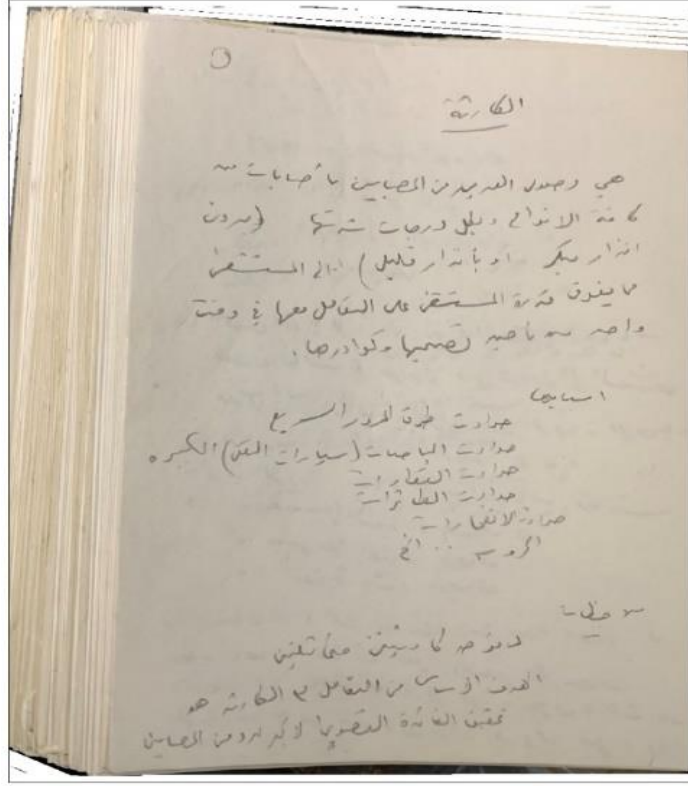 الكارثة
هي وصول العديد من المصابين باصابات من
كافة الانواع وبكل درجات شدتها (بدون
انذار مبكر او بأنذار قليل) الى المستشفى
مما يفوق قدرة المستشفى على التعامل معها في وقت
واحد من ناحية تصميمها وكوادرها.
اسبابها
حوادث طرق المرور السريع
حوادث الباصات (سيارات النقل) الكبيره
حوادث القطارات
حوادث الطائرات
حوادث الانفجارات
الحروب ... الخ
ملاحظات
لا توجد كارثتين متماثلتين
الهدف الاساسي من التعامل مع الكارثة هو
تحقيق الفائدة القصوى لاكبر عدد من المصابين